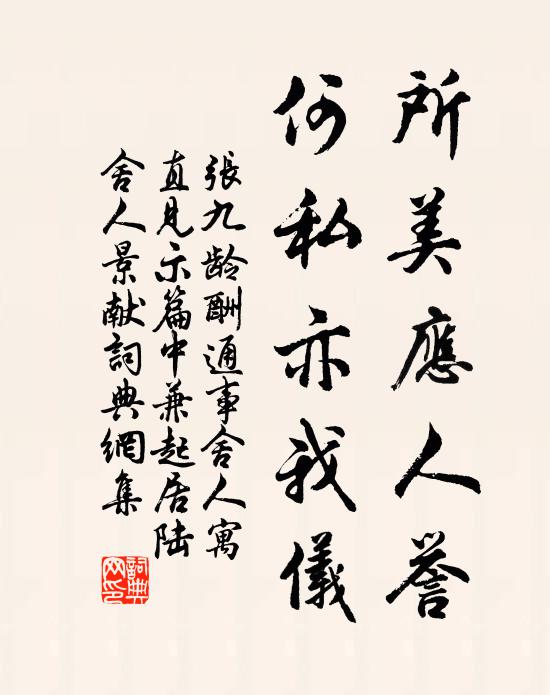 所美應人誉
何私亦我儀
張九龄酬通事舍人寓
直見示篇中兼起居陆
舍人景献詞典網集
詞典网印